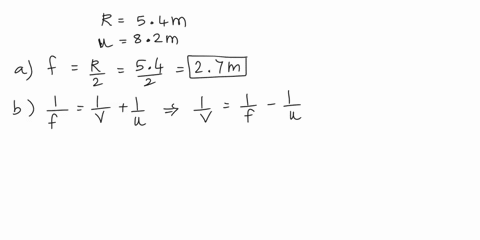 R = 5.4m
u = 8.2m
a) f = R/2 = 5.4/2 = 2.7m
b) 1/f = 1/v + 1/u ⇒ 1/v = 1/f - 1/u